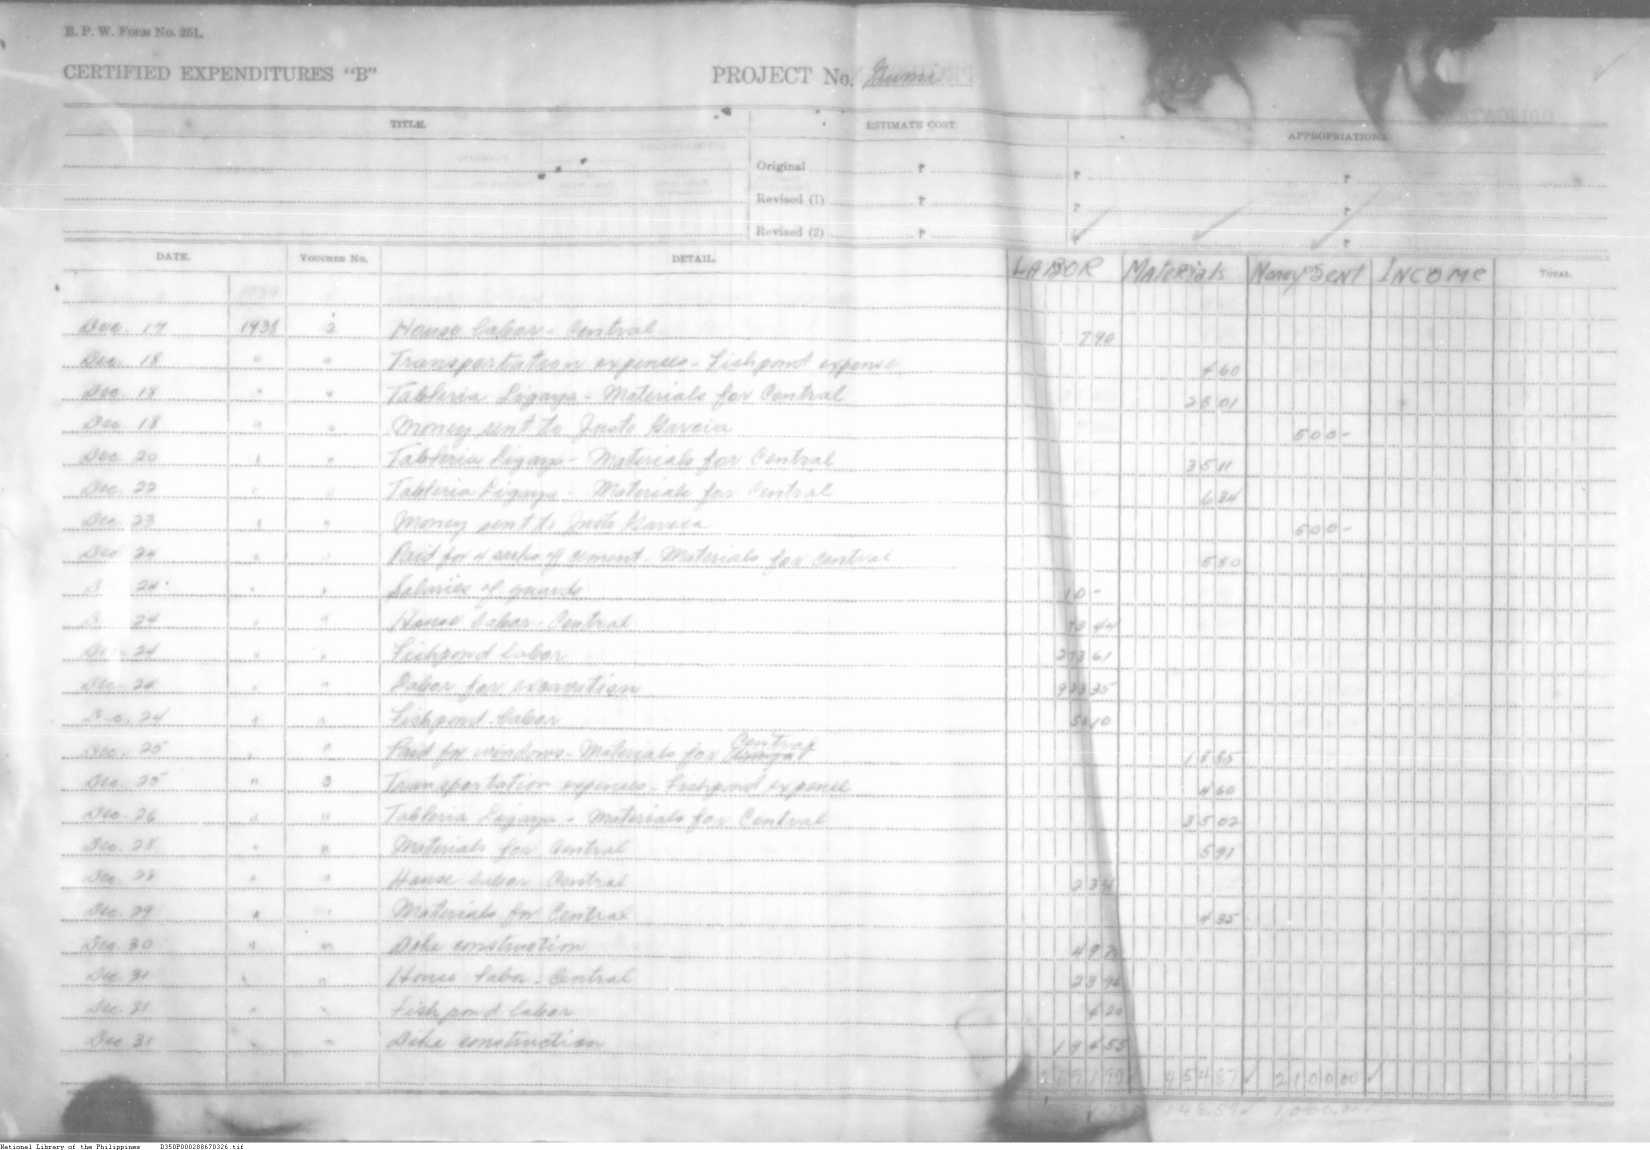 B. P. W. Form No. 251.
CERTIFIED EXPENDITURES "B" PROJECT No. Gumi
TITLE. ESTIMATE COST. APPROPRIATIONS.
Original ₱ ₱ ₱
Revised (1) ₱ ₱ ₱
Revised (2) ₱ ₱ ₱
DATE. VOUCHER No. DETAIL. LABOR Materials Money Sent INCOME TOTAL.
Dec. 17 1938 2 House labor - Central 7 90
Dec. 18 " " Transportation expenses - Fishpond expense 4 60
Dec. 18 " " Tableria Ligaya - Materials for Central 28 01
Dec. 18 " " Money sent to Justo Garcia 500 -
Dec. 20 " " Tableria Ligaya - Materials for Central 35 11
Dec. 22 " " Tableria Ligaya - Materials for Central 6 34
Dec. 23 " " Money sent to Justo Garcia 500 -
Dec 24 " " Paid for 4 sacks of cement - Materials for Central 5 50
24 " " Salaries of guards 10 -
24 " " House labor - Central 44
Dec. 24 " " Fishpond labor 273 61
Dec. 24 " " Labor for excavation 35
24 " " Fishpond labor 10
Dec. 25 " " Paid for windows - Materials for Central 18 85
Dec. 25 " 3 Transportation expenses - Fishpond expense 4 60
Dec. 26 " " Tableria Ligaya - Materials for Central 35 02
Dec. 28 " " Materials for Central 5 91
Dec. 28 " " House labor Central
Dec. 29 " " Materials for Central 4 35
Dec. 30 " " Dike construction
Dec 31 " " House labor - Central
Dec. 31 " " Fishpond labor 4 20
Dec 31 " " Dike construction 194 55
2100 00
National Library of the Philippines D350P000288670326.tif